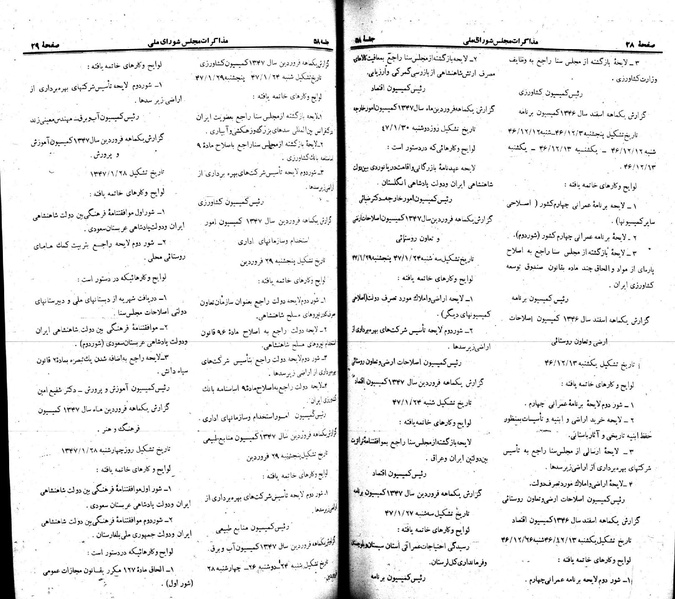 صفحهٔ ۲۸
مذاکرات مجلس شورای ملی
جلسهٔ ۵۸
۳ـ لایحهٔ بازگشته از مجلس سنا راجع به وظایف
وزارت کشاورزی
رئیس کمیسیون کشاورزی
گزارش یکماهه اسفند سال ۱۳۴۶ کمیسیون برنامه
شنبه ۴۶/۱۲/۱۲ ـ یکشنبه ۴۶/۱۲/۱۳ ـ یکشنبه
۴۶/۱۲/۱۳ .
لوایح و کارهای خاتمه یافته :
۱ـ لایحه برنامهٔ عمرانی چهارم کشور ( اصلاحی
سایر کمیسیونها ) .
۲ـ لایحه برنامه عمرانی چهارم کشور (شور دوم).
۳ـ لایحهٔ بازگشته از مجلس سنا راجع به اصلاح
پاره‌ای از مواد و الحاق چند ماده بقانون صندوق توسعه
کشاورزی ایران .
رئیس کمیسیون برنامه
گزارش یکماهه اسفند سال ۱۳۴۶ کمیسیون اصلاحات
ارضی و تعاون روستائی
تاریخ تشکیل یکشنبه ۴۶/۱۲/۱۳
لوایح و کارهای خاتمه یافته :
۱ـ شور دوم لایحهٔ برنامهٔ عمرانی چهارم .
۲ـ لایحه خرید اراضی و ابنیه و تأسیسات بمنظور
حفظ ابنیه تاریخی و آثار باستانی .
۳ـ لایحهٔ ارسالی از مجلس سنا راجع به تأسیس
شرکتهای بهره‌برداری از اراضی زیر سدها .
۴ـ لایحهٔ اراضی و املاک مورد تصرف دولت.
رئیس کمیسیون اصلاحات ارضی و تعاون روستائی
گزارش یکماهه اسفند سال ۱۳۴۶ کمیسیون اقتصاد
لوایح و کارهای خاتمه یافته :
۱ـ شور دوم لایحه برنامه عمرانی چهارم .
۲ـ لایحه بازگشته از مجلس سنا راجع بمعافیت کالاهای
مصرف ارتش شاهنشاهی از بازرسی گمرکی و ارزیابی.
رئیس کمیسیون اقتصاد
گزارش یکماهه فروردین ماه سال ۱۳۴۷ کمیسیون امور خارجه
تاریخ تشکیل روز دوشنبه ۴۷/۱/۳۰
لوایح و کارهائی که در دستور است :
لایحه عهدنامهٔ بازرگانی و اقامت و دریانوردی بین دولت
شاهنشاهی ایران و دولت پادشاهی انگلستان .
گزارش یکماهه فروردین سال ۱۳۴۷ کمیسیون اصلاحات ارضی
و تعاون روستائی
لوایح و کارهای خاتمه یافته :
۱ـ لایحه اراضی و املاک مورد تصرف دولت (اصلاحی
کمیسیونهای دیگر) .
۲ـ شور دوم لایحه تأسیس شرکت‌های بهره‌برداری از
اراضی زیر سدها .
رئیس کمیسیون اصلاحات ارضی و تعاون روستائی
گزارش یکماهه فروردین سال ۱۳۴۷ کمیسیون اقتصاد
تاریخ تشکیل شنبه ۴۷/۱/۲۴
لوایح و کارهای خاتمه یافته :
لایحه بازگشته از مجلس سنا راجع به موافقتنامهٔ ترانزیت
بین دولتین ایران و عراق.
رئیس کمیسیون اقتصاد
گزارش یکماهه فروردین سال ۱۳۴۷ کمیسیون برنامه
تاریخ تشکیل سه‌شنبه ۴۷/۱/۲۷
لوایح و کارهای خاتمه یافته :
رسیدگی احتیاجات عمرانی استان سیستان و بلوچستان
و فرمانداری کل لرستان.
رئیس کمیسیون برنامه
جلسهٔ ۵۸
مذاکرات مجلس شورای ملی
صفحهٔ ۲۹
گزارش یکماهه فروردین سال ۱۳۴۷ کمیسیون کشاورزی
تاریخ تشکیل شنبه ۴۷/۱/۲۴ پنجشنبه ۴۷/۱/۲۹
لوایح و کارهای خاتمه یافته :
۱ـ لایحه بازگشته از مجلس سنا راجع بعضویت ایران
در کنفرانس بین‌المللی سدهای بزرگ و زهکشی و آبیاری .
۲ـ لایحهٔ بازگشته از مجلس سنا راجع باصلاح مادهٔ ۹
اساسنامه بانک کشاورزی .
۳ـ شور دوم لایحه تأسیس شرکت‌های بهره‌برداری از
اراضی زیر سدها.
رئیس کمیسیون کشاورزی
گزارش یکماهه فروردین سال ۱۳۴۷ کمیسیون امور
استخدام و سازمانهای اداری
تاریخ تشکیل پنجشنبه ۲۹ فروردین
لوایح و کارهای خاتمه یافته :
۱ـ شور دوم لایحه دولت راجع بعنوان سازمان تعاون
مصرف کادر نیروهای مسلح شاهنشاهی.
۲ـ لایحه دولت راجع باصلاح مادهٔ ۹۶ قانون
استخدام نیروهای مسلح شاهنشاهی.
۳ـ شور دوم لایحه تأسیس شرکتهای
بهره‌برداری از اراضی زیر سدها .
۴ـ لایحه دولت راجع به اصلاح مادهٔ ۹ اساسنامهٔ بانک
کشاورزی ایران
رئیس کمیسیون امور استخدام و سازمانهای اداری
گزارش یکماهه فروردین سال ۱۳۴۷ کمیسیون منابع طبیعی
تاریخ تشکیل پنجشنبه ۲۹ فروردین
لوایح و کارهای خاتمه یافته :
۱ـ شور دوم لایحه تأسیس شرکت‌های بهره‌برداری از
اراضی زیر سدها.
رئیس کمیسیون منابع طبیعی
گزارش یکماهه فروردین سال ۱۳۴۷ کمیسیون آب و برق
تاریخ تشکیل شنبه ۲۴ دوشنبه ۲۶ ـ چهارشنبه ۲۸
لوایح و کارهای خاتمه یافته :
۱ـ شور دوم لایحه تأسیس شرکتهای بهره‌برداری از
اراضی زیر سدها .
رئیس کمیسیون آب و برق ـ مهندس معینی زند
گزارش یکماهه فروردین سال ۱۳۴۷ کمیسیون آموزش
و پرورش .
تاریخ تشکیل ۱۳۴۷/۱/۲۸
لوایح و کارهای خاتمه یافته :
۱ـ شور اول موافقتنامهٔ فرهنگی بین دولت شاهنشاهی
ایران و دولت پادشاهی عربستان سعودی .
۲ـ شور دوم لایحه راجع بتربیت کمک مامای
روستائی محلی .
لوایح و کارهائیکه در دستور است :
۱ـ دریافت شهریه از دبستانهای ملی و دبیرستانهای
دولتی اصلاحات مجلس سنا .
۲ـ موافقتنامهٔ فرهنگی بین دولت شاهنشاهی ایران
و دولت پادشاهی عربستان سعودی (شور دوم) .
۳ـ لایحه راجع به اضافه شدن یک تبصره بماده ۲ قانون
سپاه دانش .
رئیس کمیسیون آموزش و پرورش ـ دکتر شفیع امین
گزارش یکماهه فروردین ماه سال ۱۳۴۷ کمیسیون
فرهنگ و هنر .
تاریخ تشکیل روز چهارشنبه ۱۳۴۷/۱/۲۸
لوایح و کارهای خاتمه یافته :
۱ـ شور اول موافقتنامهٔ فرهنگی بین دولت شاهنشاهی
ایران و دولت پادشاهی عربستان سعودی .
۲ـ شور دوم موافقتنامهٔ فرهنگی بین دولت شاهنشاهی
ایران و دولت جمهوری ملی بلغارستان.
لوایح و کارهائیکه در دستور است :
۱ـ الحاق مادهٔ ۱۲۷ مکرر بقانون مجازات عمومی
(شور اول) .